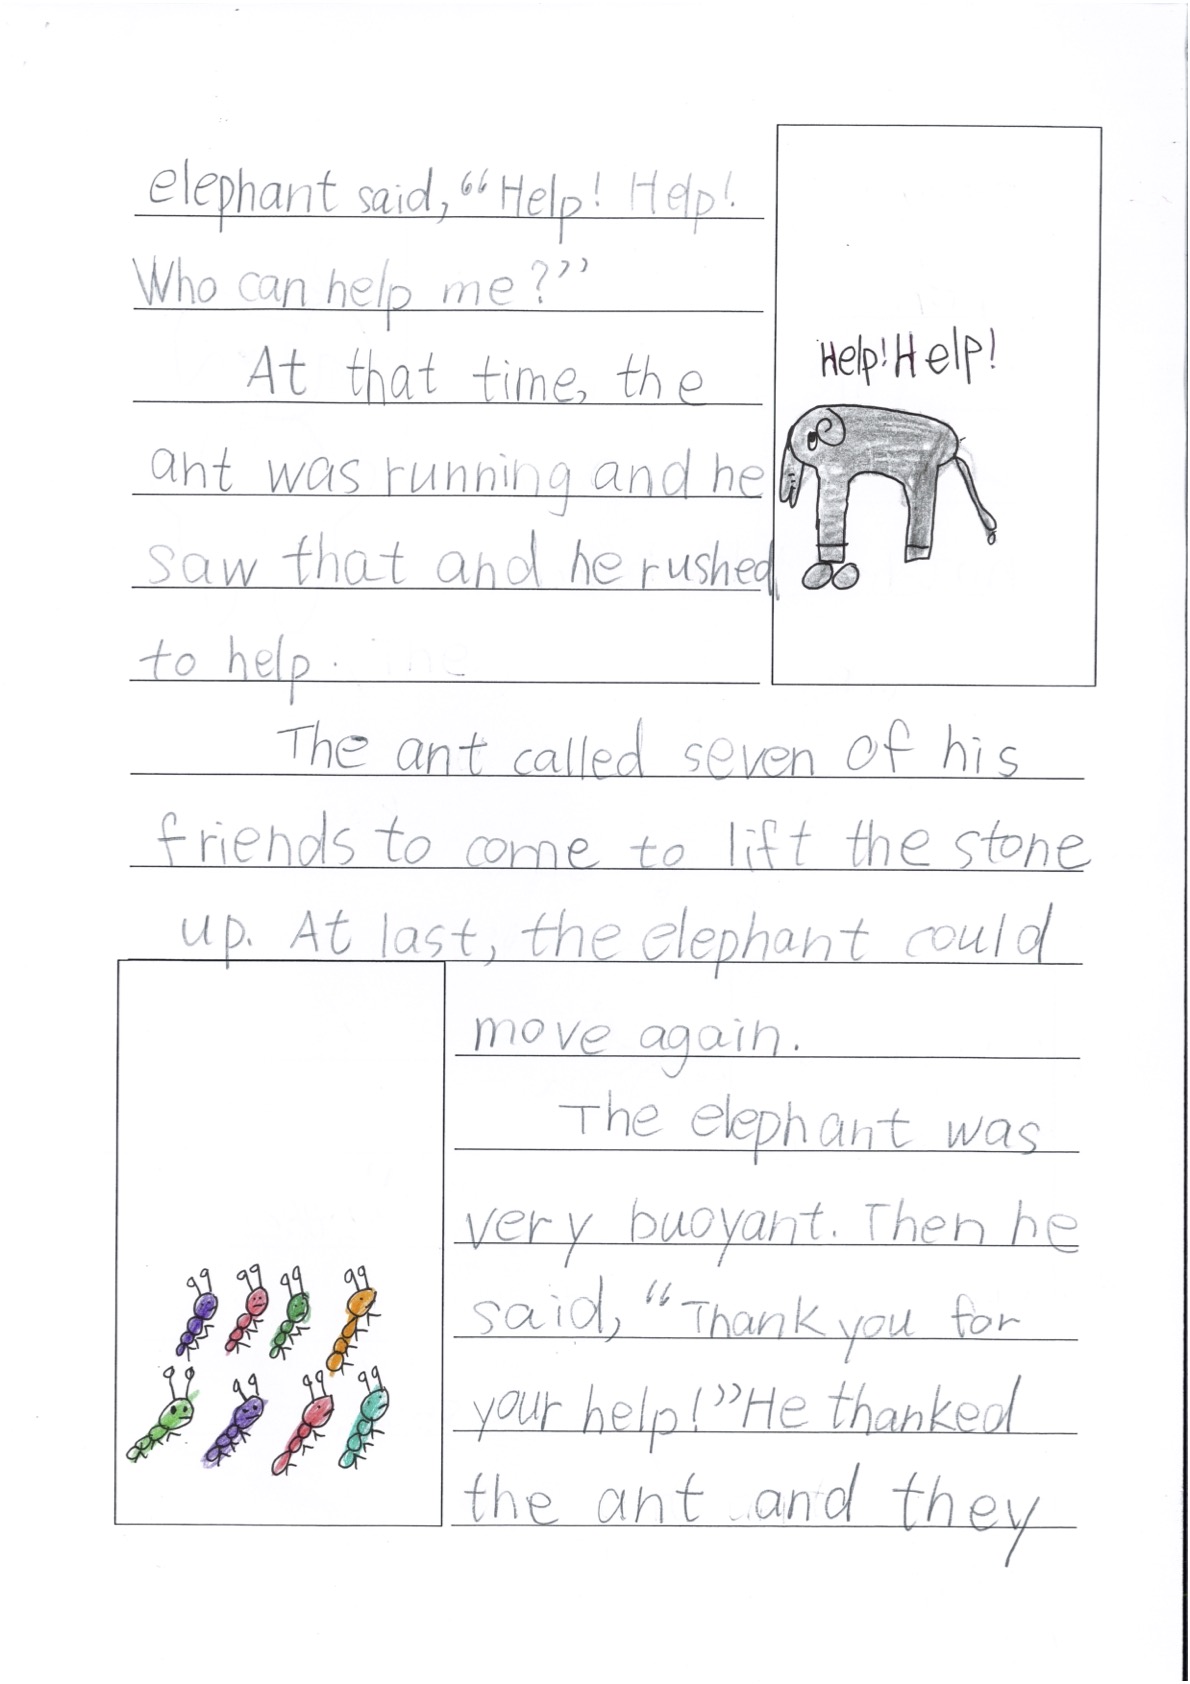 elephant said, “Help! Help!
Who can help me?”
Help! Help!
At that time, the
ant was running and he
saw that and he rushed
to help.
The ant called seven of his
friends to come to lift the stone
up. At last, the elephant could
move again.
The elephant was
very buoyant. Then he
said, “Thank you for
your help!” He thanked
the ant and they